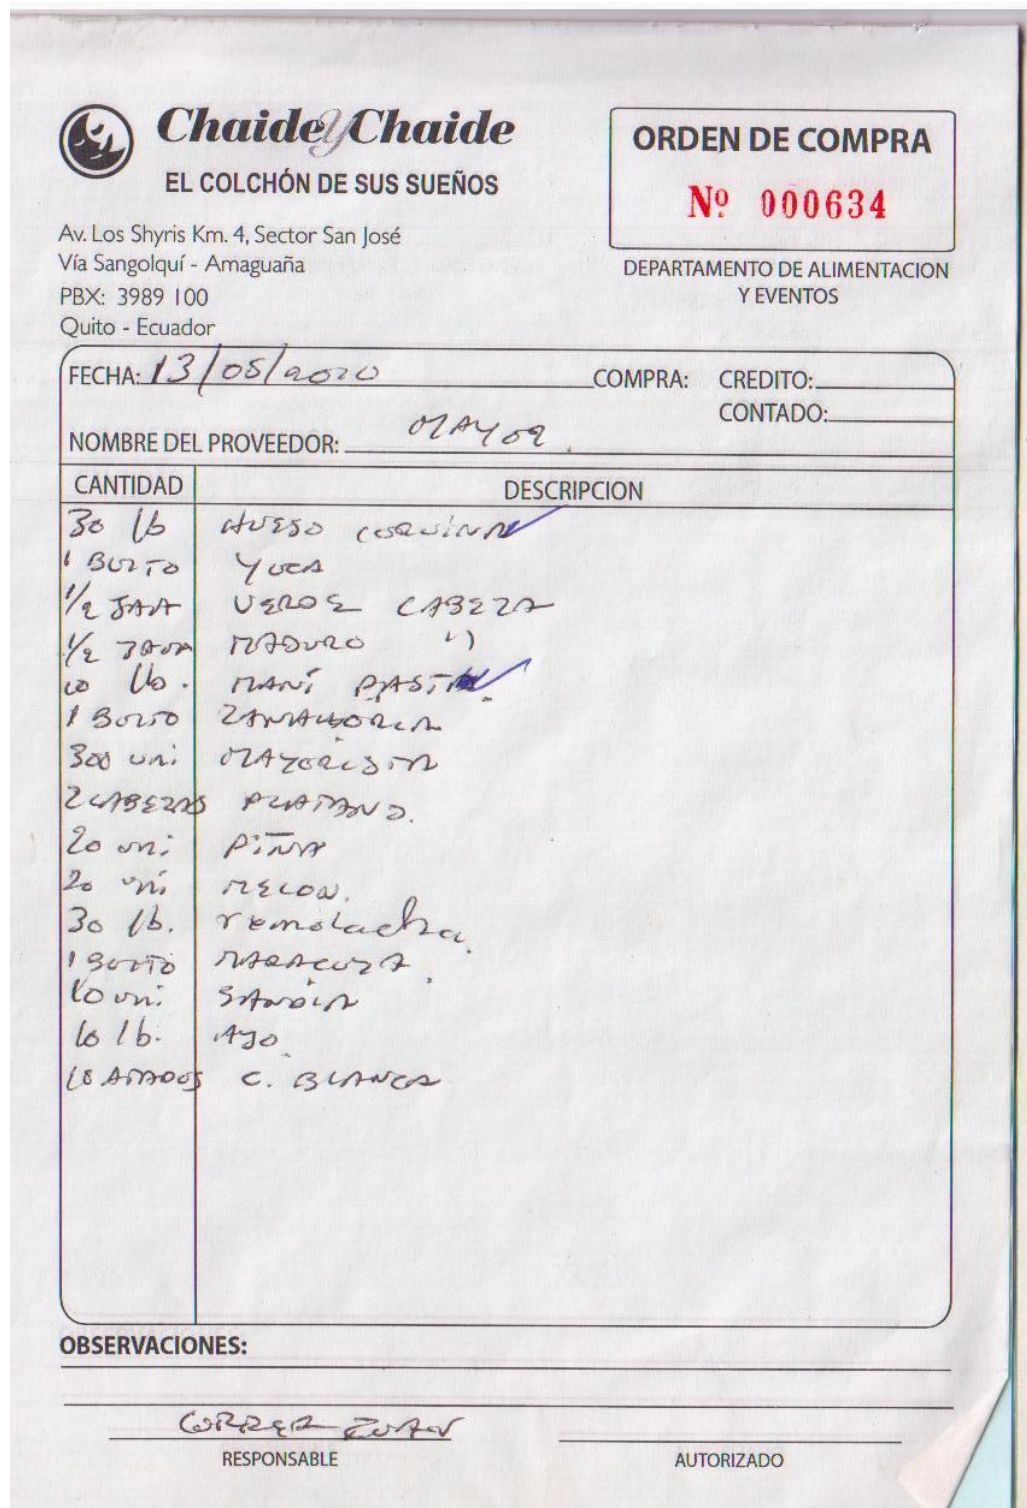 Chaide y Chaide
EL COLCHÓN DE SUS SUEÑOS
Av. Los Shyris Km. 4, Sector San José
Vía Sangolquí - Amaguaña
PBX: 3989 100
Quito - Ecuador
ORDEN DE COMPRA
Nº 000634
DEPARTAMENTO DE ALIMENTACION
Y EVENTOS
FECHA: 13/05/2020 COMPRA: CREDITO:
CONTADO:
NOMBRE DEL PROVEEDOR: MAYOR
CANTIDAD DESCRIPCION
30 lb HUESO CORVINA
1 BULTO YUCA
1/2 JAVA VERDE CABEZA
1/2 JAVA MADURO ')
10 lb. MANÍ PASTA
1 BULTO ZANAHORIA
300 uni MAYORISTA
2 CABEZAS PLATANO.
20 uni PIÑA
20 uni MELON.
30 lb. remolacha
1 BULTO MARACUYA
10 uni SANDIA
10 lb. AJO
10 ATADOS C. BLANCA
OBSERVACIONES:
CORREA JUAN
RESPONSABLE AUTORIZADO